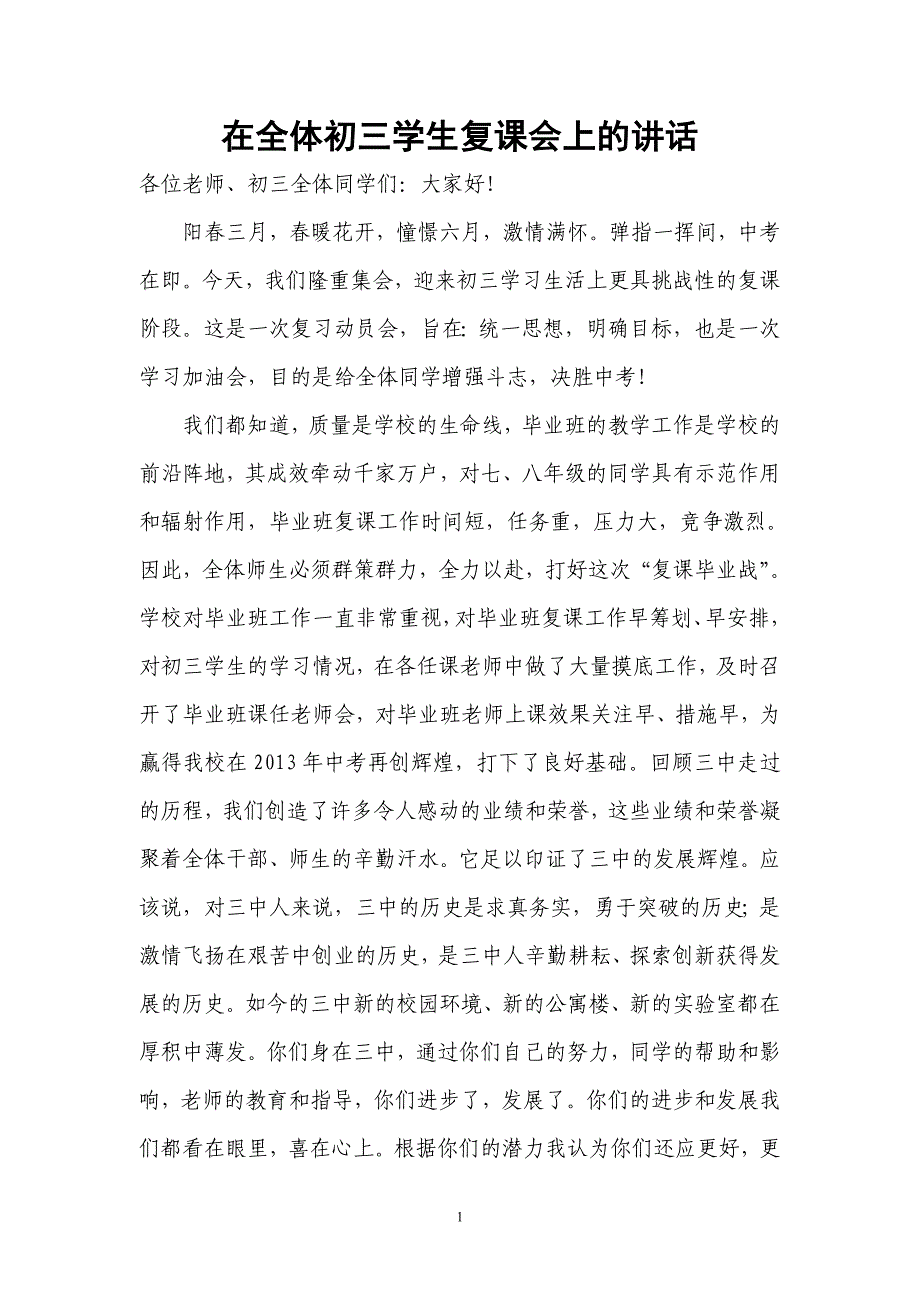 在全体初三学生复课会上的讲话
各位老师、初三全体同学们：大家好！
阳春三月，春暖花开，憧憬六月，激情满怀。弹指一挥间，中考
在即。今天，我们隆重集会，迎来初三学习生活上更具挑战性的复课
阶段。这是一次复习动员会，旨在：统一思想，明确目标，也是一次
学习加油会，目的是给全体同学增强斗志，决胜中考！
我们都知道，质量是学校的生命线，毕业班的教学工作是学校的
前沿阵地，其成效牵动千家万户，对七、八年级的同学具有示范作用
和辐射作用，毕业班复课工作时间短，任务重，压力大，竞争激烈。
因此，全体师生必须群策群力，全力以赴，打好这次“复课毕业战”。
学校对毕业班工作一直非常重视，对毕业班复课工作早筹划、早安排，
对初三学生的学习情况，在各任课老师中做了大量摸底工作，及时召
开了毕业班课任老师会，对毕业班老师上课效果关注早、措施早，为
赢得我校在 2013 年中考再创辉煌，打下了良好基础。回顾三中走过
的历程，我们创造了许多令人感动的业绩和荣誉，这些业绩和荣誉凝
聚着全体干部、师生的辛勤汗水。它足以印证了三中的发展辉煌。应
该说，对三中人来说，三中的历史是求真务实，勇于突破的历史；是
激情飞扬在艰苦中创业的历史，是三中人辛勤耕耘、探索创新获得发
展的历史。如今的三中新的校园环境、新的公寓楼、新的实验室都在
厚积中薄发。你们身在三中，通过你们自己的努力，同学的帮助和影
响，老师的教育和指导，你们进步了，发展了。你们的进步和发展我
们都看在眼里，喜在心上。根据你们的潜力我认为你们还应更好，更
1